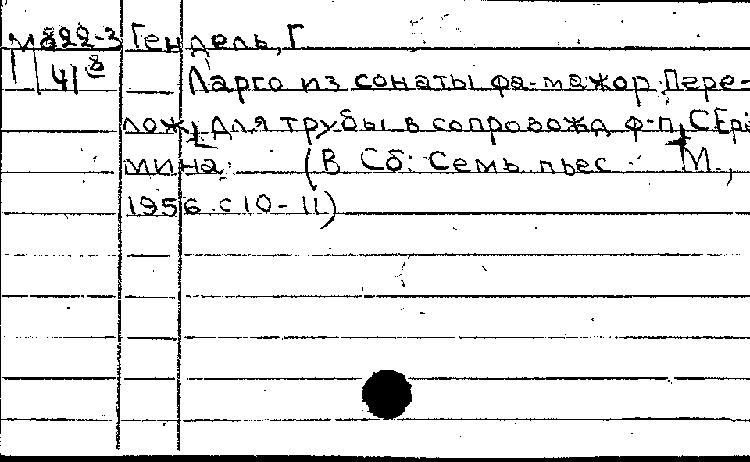 М822-3 Гендель, Г.
41 8 Ларго из сонаты фа-мажор. Пере-
лож. для трубы в сопровожд. ф-п. С. Ерё
мина. (В сб: Семь пьес. М.,
1956. с 10-11)